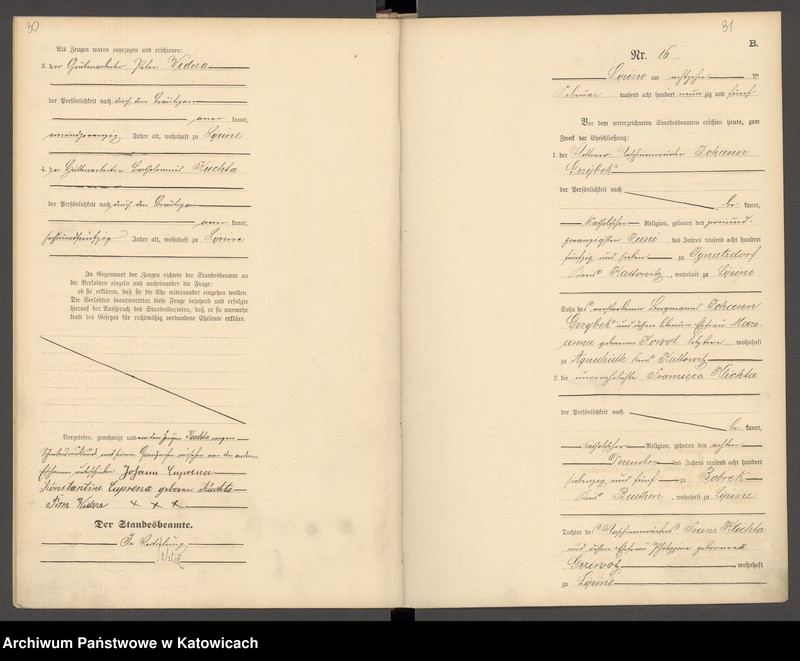 30
Als Zeugen waren zugezogen und erschienen:
3. der Hüttenarbeiter Peter Widera
der Persönlichkeit nach durch den Bräutigam
aner kannt,
Jahre alt, wohnhaft zu Lipine
4. der Hüttenarbeiter Bartholomeus Kuchta
der Persönlichkeit nach durch den Bräutigam
aner kannt,
Jahre alt, wohnhaft zu Lipine
In Gegenwart der Zeugen richtete der Standesbeamte an
die Verlobten einzeln und nacheinander die Frage:
ob sie erklären, daß sie die Ehe miteinander eingehen wollen.
Die Verlobten beantworteten diese Frage bejahend und erfolgte
hierauf der Ausspruch des Standesbeamten, daß er sie nunmehr
kraft des Gesetzes für rechtmäßig verbundene Eheleute erkläre.
Vorgelesen, genehmigt und von dem Zeugen Kuchta wegen
Johann
Konstantine geborene Kuchta
Peter Widera + + +
Der Standesbeamte.
In Vertretung
31
B.
Nr. 16
Lipine am achtzehn ten
Februar tausend acht hundert neun zig und fünf
Vor dem unterzeichneten Standesbeamten erschien heute, zum
Zweck der Eheschließung:
1. der Johann
Grzybek
der Persönlichkeit nach
be kannt,
katholischer Religion, geboren den zweiund-
zwanzigsten Juni des Jahres tausend acht hundert
fünfzig und sieben zu Ignatzdorf
Kreis Kattowitz, wohnhaft zu Lipine
Sohn des verstorbenen Bergmanns Johann
Grzybek und dessen lebenden Ehefrau Mari-
anna geborenen Kowol letztere wohnhaft
zu Agneshütte Kreis Kattowitz
2. die unverehelichte Franziska Klichta
der Persönlichkeit nach
be kannt,
katholischer Religion, geboren den achten
Dezember des Jahres tausend acht hundert
siebenzig und fünf zu Bobrek
Kreis Beuthen, wohnhaft zu Lipine
Tochter des Maschinenwärters Franz Klichta
und dessen Ehefrau Philippine geborenen
wohnhaft
zu Lipine
Archiwum Państwowe w Katowicach